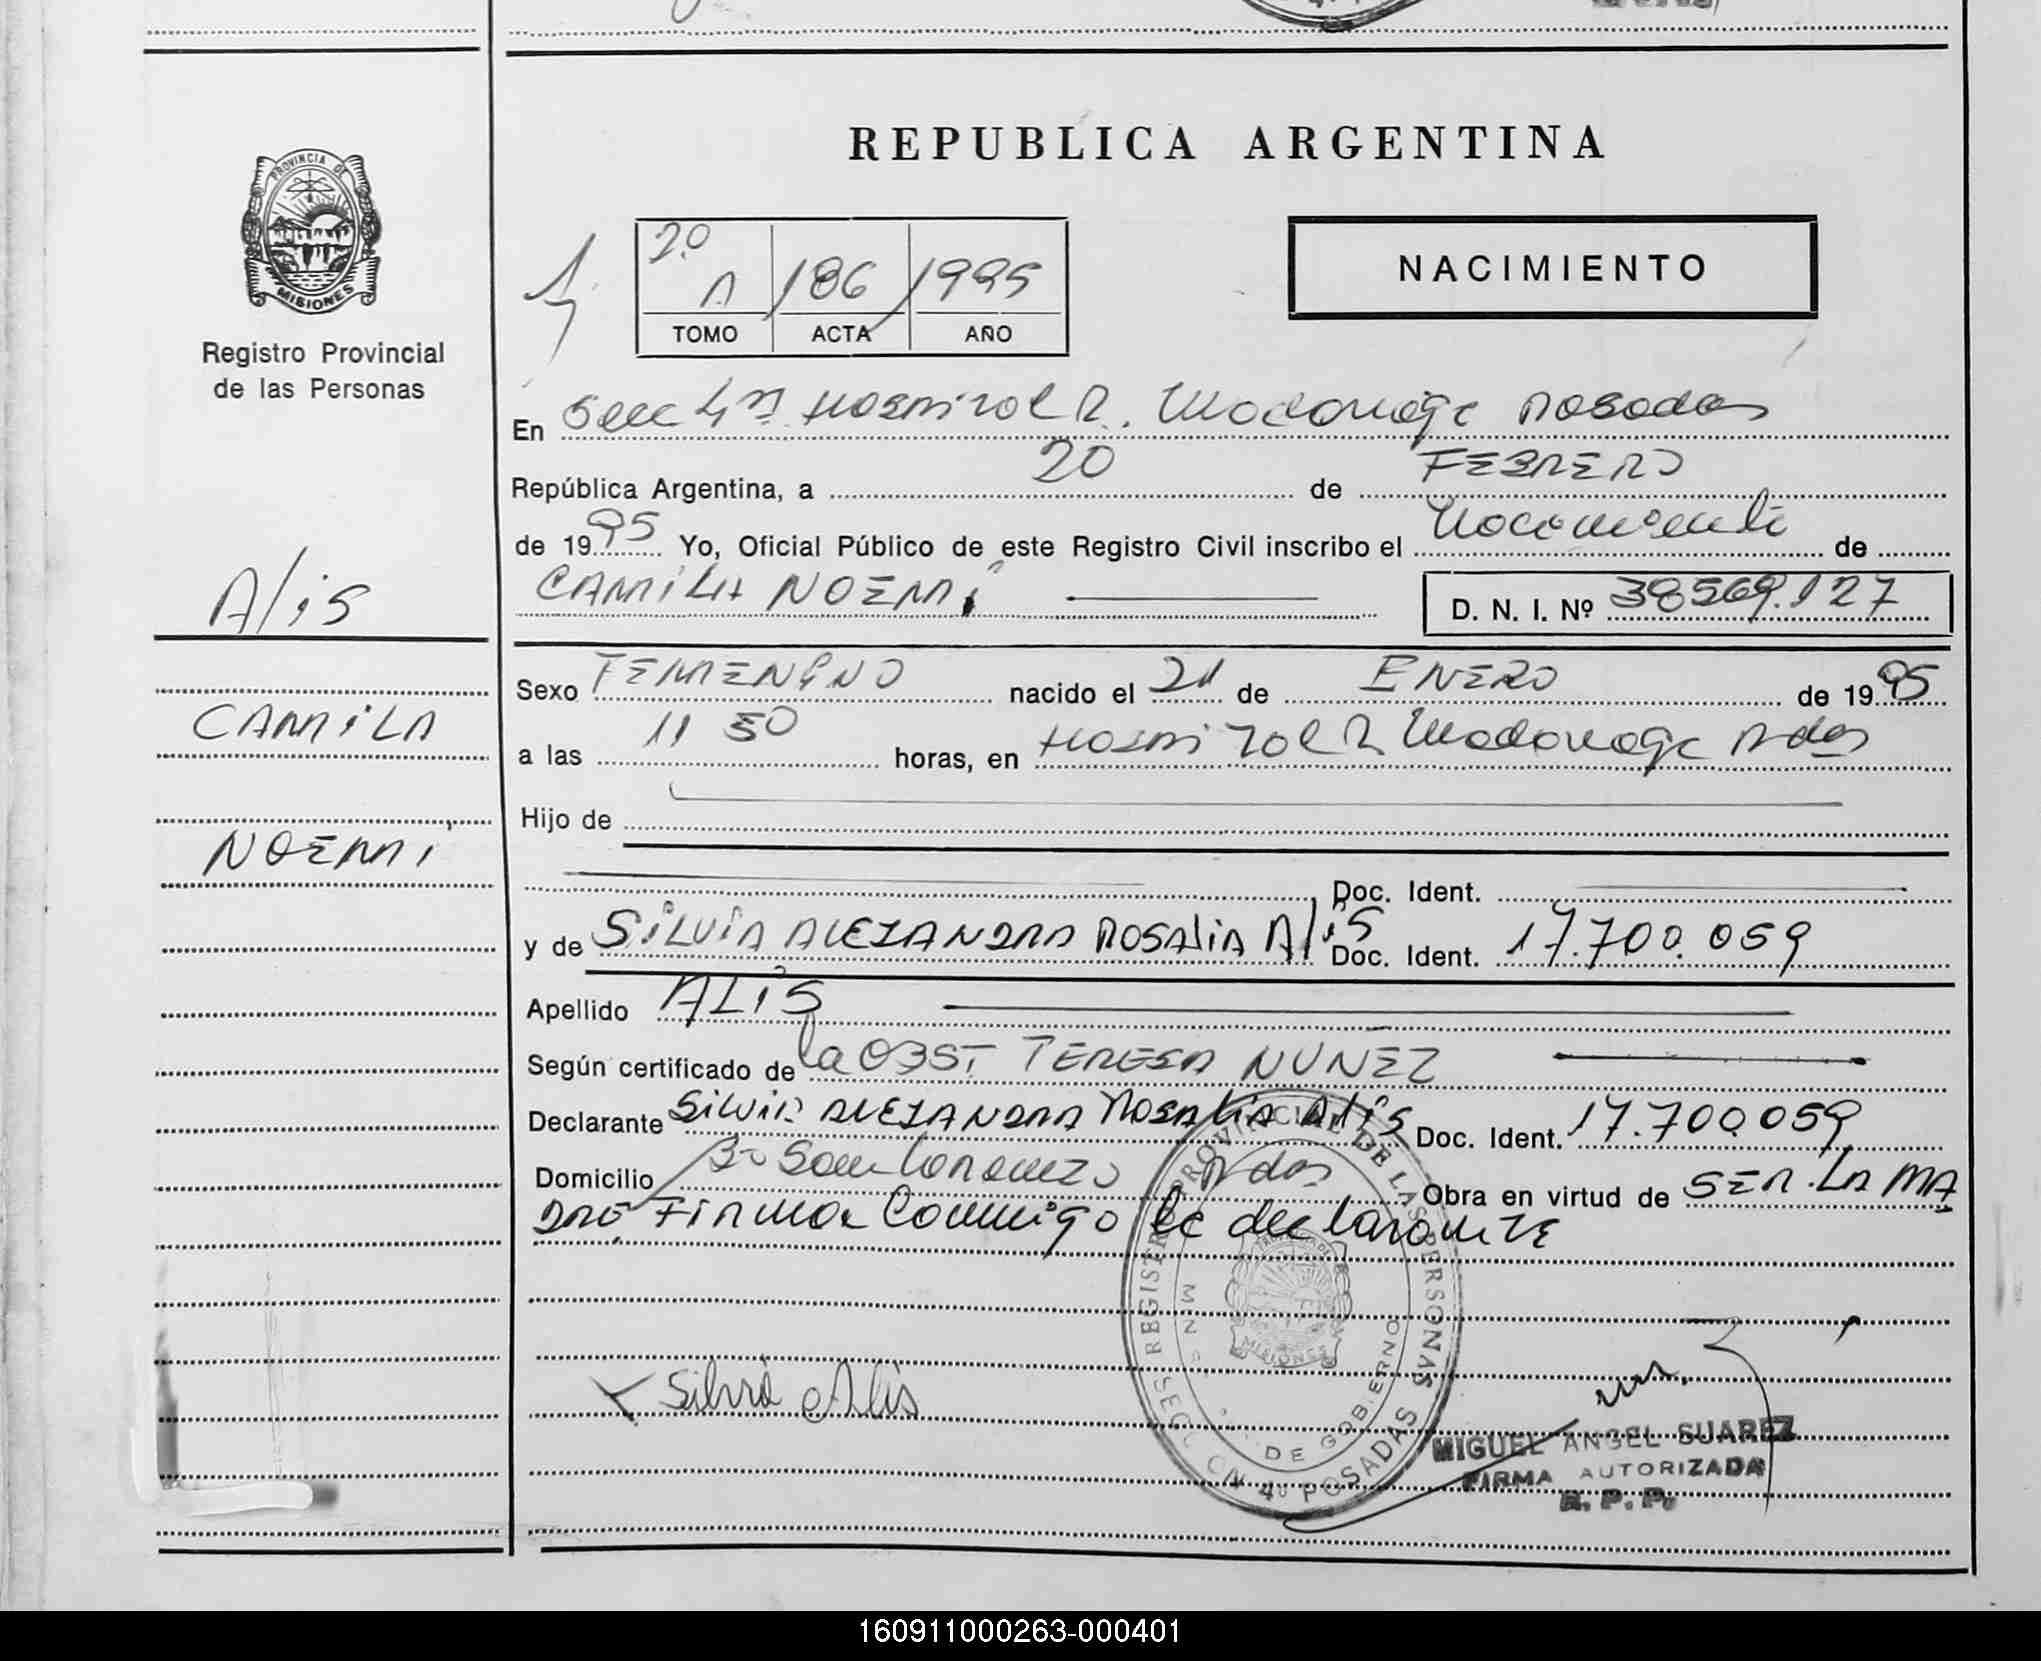 REPUBLICA ARGENTINA
PROVINCIA DE
MISIONES
Registro Provincial
de las Personas
2.0
A 186 1995
TOMO ACTA AÑO
NACIMIENTO
En Secc 4ta Hospital R. Madariaga Posadas
República Argentina, a 20 de FEBRERO
de 1995 Yo, Oficial Público de este Registro Civil inscribo el Nacimiento de
CAMILA NOEMÍ D. N. I. Nº 38569.127
Alis
CAMILA
NOEMÍ
Sexo FEMENINO nacido el 21 de ENERO de 1995
a las 11 50 horas, en Hospital R Madariaga Pdas
Hijo de
Doc. Ident.
y de SILVIA ALEJANDRA ROSALIA Alis Doc. Ident. 17.700.059
Apellido ALIS
Según certificado de la OBST TERESA NUÑEZ
Declarante SILVIA ALEJANDRA ROSALIA Alis Doc. Ident. 17.700059
Domicilio Bº San Lorenzo Pdas Obra en virtud de SER. LA MA
DRE FIRMA Conmigo la declarante
REGISTRO PROVINCIAL DE LAS PERSONAS
MISIONES
DE GOBIERNO
SECCION 4º POSADAS
Silvia Alis
MIGUEL ANGEL SUAREZ
FIRMA AUTORIZADA
R. P. P.
160911000263-000401